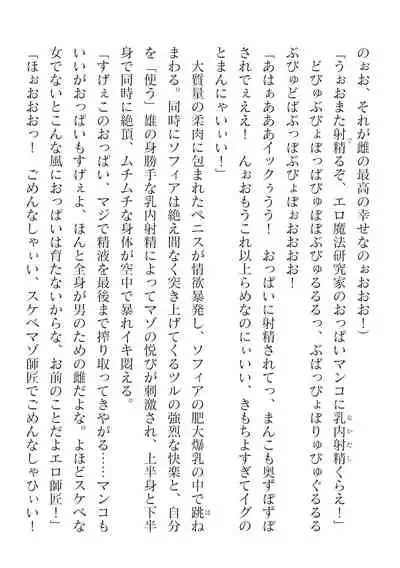 のぉお、それが雌の最高の幸せなのぉおお！）
「うぉおまた射精るぞ、エロ魔法研究家のおっぱいマンコに乳内射精くらえ！」
どびゅぶぴょぽっぱぴゅぽぽぶぴゅるるるっ、ぶばっぴょぽりゅぴゅぐるるる
ぶびゅどばぶっぽぶぴょぽぉおおおお！
「あはぁあああイックぅうう！　おっぱいに射精されてっ、まんこも奥ずぼずぼ
されでぇええ！　んぉおもうこれ以上らめなのにぃいい、きもちよすぎてイグの
とまんにゃいぃい！」
大質量の柔肉に包まれたペニスが情欲暴発し、ソフィアの肥大爆乳の中で跳ね
まわる。同時にソフィアは絶え間なく突き上げてくるツルの強烈な快楽と、自分
を「使う」雄の身勝手な乳内射精によってマゾの悦びが刺激され、上半身と下半
身で同時に絶頂、ムチムチな身体が空中で暴れイキ悶える。
「すげぇこのおっぱい、マジで精液を最後まで搾り取ってきやがる……マンコも
いいがおっぱいもすげぇよ、ほんと全身が男のための雌だよな。よほどスケベな
女でないとこんな風におっぱいは育たないからな。お前のことだよエロ師匠！」
「ほぉおおおっ！　ごめんなしゃぃい、スケベマゾ師匠でごめんなしゃひぃい！